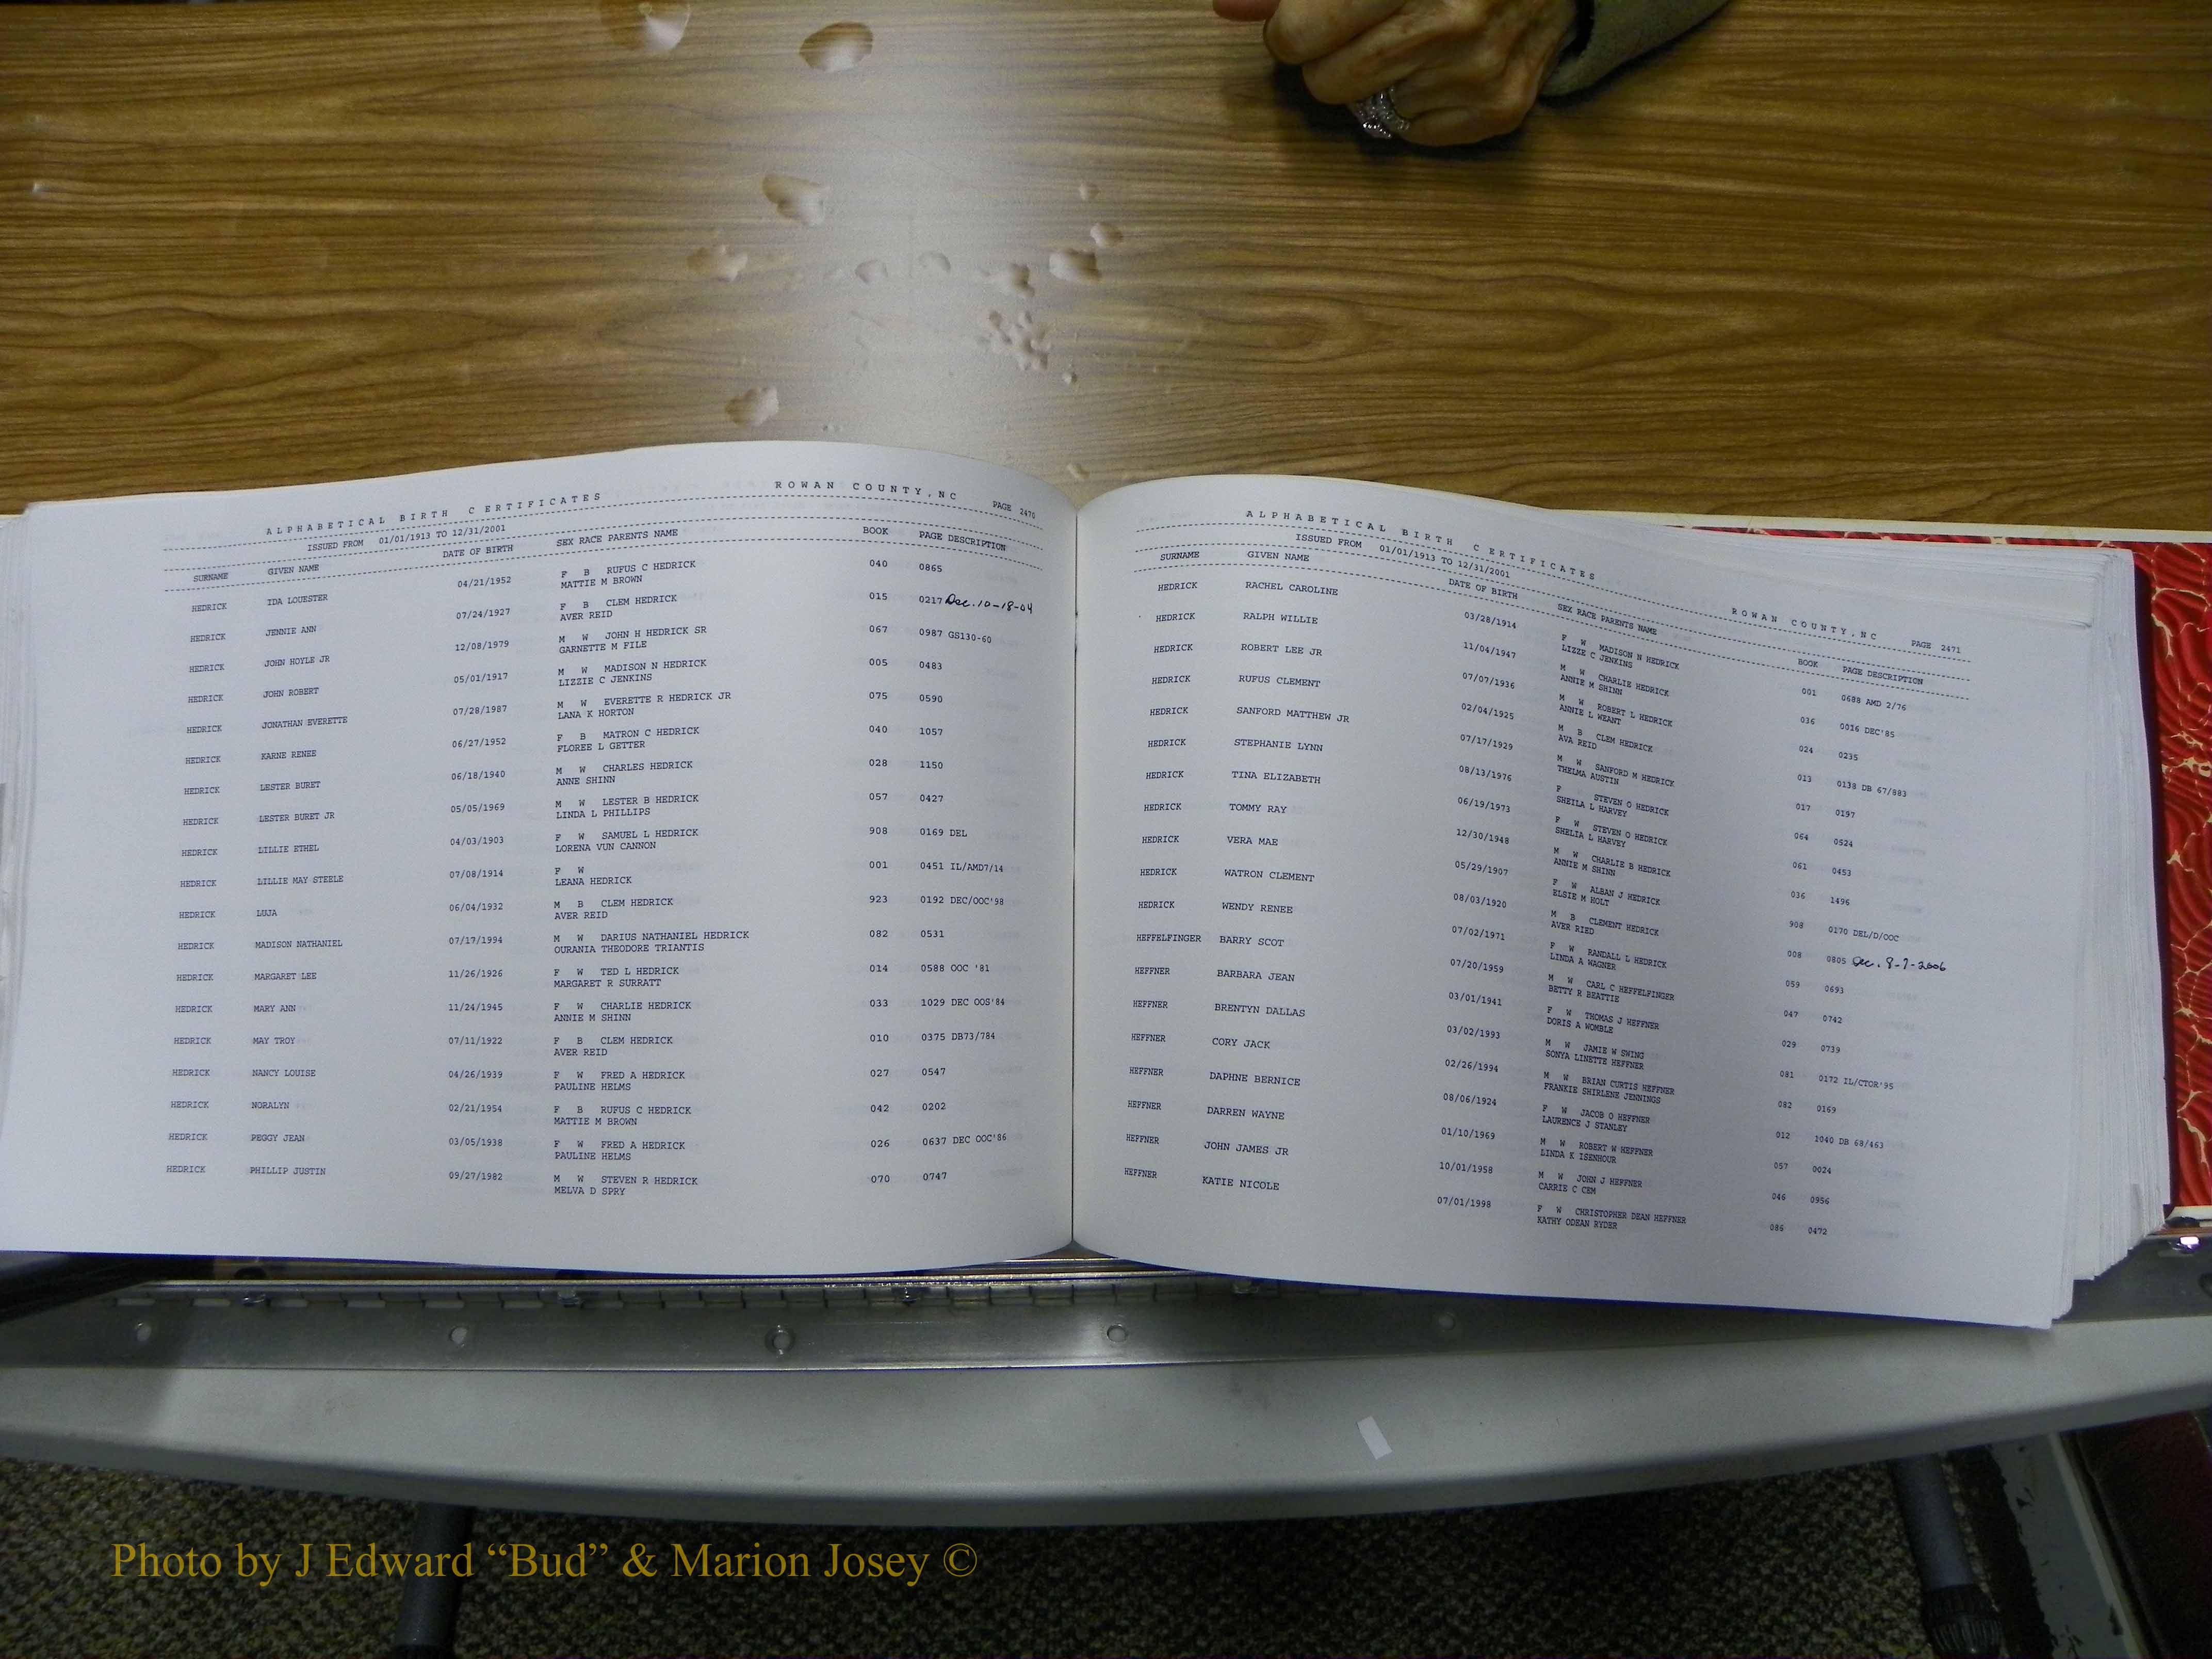 ALPHABETICAL BIRTH CERTIFICATES ROWAN COUNTY,NC PAGE 2470
ISSUED FROM 01/01/1913 TO 12/31/2001
SURNAME GIVEN NAME DATE OF BIRTH SEX RACE PARENTS NAME BOOK PAGE DESCRIPTION
HEDRICK IDA LOUESTER 04/21/1952 F B RUFUS C HEDRICK 040 0865
MATTIE M BROWN
HEDRICK JENNIE ANN 07/24/1927 F B CLEM HEDRICK 015 0217 Dec. 10-18-04
AVER REID
HEDRICK JOHN HOYLE JR 12/08/1979 M W JOHN H HEDRICK SR 067 0987 GS130-60
GARNETTE M FILE
HEDRICK JOHN ROBERT 05/01/1917 M W MADISON N HEDRICK 005 0483
LIZZIE C JENKINS
HEDRICK JONATHAN EVERETTE 07/28/1987 M W EVERETTE R HEDRICK JR 075 0590
LANA K HORTON
HEDRICK KARNE RENEE 06/27/1952 F B MATRON C HEDRICK 040 1057
FLOREE L GETTER
HEDRICK LESTER BURET 06/18/1940 M W CHARLES HEDRICK 028 1150
ANNE SHINN
HEDRICK LESTER BURET JR 05/05/1969 M W LESTER B HEDRICK 057 0427
LINDA L PHILLIPS
HEDRICK LILLIE ETHEL 04/03/1903 F W SAMUEL L HEDRICK 908 0169 DEL
LORENA VUN CANNON
HEDRICK LILLIE MAY STEELE 07/08/1914 F W 001 0451 IL/AMD7/14
LEANA HEDRICK
HEDRICK LUJA 06/04/1932 M B CLEM HEDRICK 923 0192 DEC/OOC'98
AVER REID
HEDRICK MADISON NATHANIEL 07/17/1994 M W DARIUS NATHANIEL HEDRICK 082 0531
OURANIA THEODORE TRIANTIS
HEDRICK MARGARET LEE 11/26/1926 F W TED L HEDRICK 014 0588 OOC '81
MARGARET R SURRATT
HEDRICK MARY ANN 11/24/1945 F W CHARLIE HEDRICK 033 1029 DEC OOS'84
ANNIE M SHINN
HEDRICK MAY TROY 07/11/1922 F B CLEM HEDRICK 010 0375 DB73/784
AVER REID
HEDRICK NANCY LOUISE 04/26/1939 F W FRED A HEDRICK 027 0547
PAULINE HELMS
HEDRICK NORALYN 02/21/1954 F B RUFUS C HEDRICK 042 0202
MATTIE M BROWN
HEDRICK PEGGY JEAN 03/05/1938 F W FRED A HEDRICK 026 0637 DEC OOC'86
PAULINE HELMS
HEDRICK PHILLIP JUSTIN 09/27/1982 M W STEVEN R HEDRICK 070 0747
MELVA D SPRY
ALPHABETICAL BIRTH CERTIFICATES ROWAN COUNTY,NC PAGE 2471
ISSUED FROM 01/01/1913 TO 12/31/2001
SURNAME GIVEN NAME DATE OF BIRTH SEX RACE PARENTS NAME BOOK PAGE DESCRIPTION
HEDRICK RACHEL CAROLINE 03/28/1914 F W MADISON N HEDRICK 001 0688 AMD 2/76
LIZZE C JENKINS
HEDRICK RALPH WILLIE 11/04/1947 M W CHARLIE HEDRICK 036 0036 DEC'85
ANNIE M SHINN
HEDRICK ROBERT LEE JR 07/07/1936 M W ROBERT L HEDRICK 024 0235
ANNIE L WEANT
HEDRICK RUFUS CLEMENT 02/04/1925 M B CLEM HEDRICK 013 0138 DB 67/883
AVA REID
HEDRICK SANFORD MATTHEW JR 07/17/1929 M W SANFORD M HEDRICK 017 0197
THELMA AUSTIN
HEDRICK STEPHANIE LYNN 08/13/1976 F STEVEN O HEDRICK 064 0524
SHEILA L HARVEY
HEDRICK TINA ELIZABETH 06/19/1973 F W STEVEN O HEDRICK 061 0453
SHELIA L HARVEY
HEDRICK TOMMY RAY 12/30/1948 M W CHARLIE B HEDRICK 036 1496
ANNIE M SHINN
HEDRICK VERA MAE 05/29/1907 F W ALBAN J HEDRICK 908 0170 DEL/D/OOC
ELSIE M HOLT
HEDRICK WATRON CLEMENT 08/03/1920 M B CLEMENT HEDRICK 008 0805 Dec. 8-7-2006
AVER RIED
HEDRICK WENDY RENEE 07/02/1971 F W RANDALL L HEDRICK 059 0693
LINDA A WAGNER
HEFFELFINGER BARRY SCOT 07/20/1959 M W CARL C HEFFELFINGER 047 0742
BETTY R BEATTIE
HEFFNER BARBARA JEAN 03/01/1941 F W THOMAS J HEFFNER 029 0739
DORIS A WOMBLE
HEFFNER BRENTYN DALLAS 03/02/1993 M W JAMIE W SWING 081 0172 IL/CTOR'95
SONYA LINETTE HEFFNER
HEFFNER CORY JACK 02/26/1994 M W BRIAN CURTIS HEFFNER 082 0169
FRANKIE SHIRLENE JENNINGS
HEFFNER DAPHNE BERNICE 08/06/1924 F W JACOB O HEFFNER 012 1040 DB 68/463
LAURENCE J STANLEY
HEFFNER DARREN WAYNE 01/10/1969 M W ROBERT W HEFFNER 057 0024
LINDA K ISENHOUR
HEFFNER JOHN JAMES JR 10/01/1958 M W JOHN J HEFFNER 046 0956
CARRIE C CEM
HEFFNER KATIE NICOLE 07/01/1998 F W CHRISTOPHER DEAN HEFFNER 086 0472
KATHY ODEAN RYDER
Photo by J Edward “Bud” & Marion Josey ©